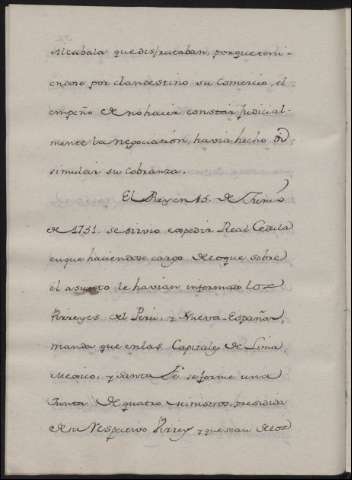 Alcabala que disfrutaban, porque teni-
endo por clandestino su Comercio, el
empeño de no hacer constar Judicial-
mente la negociación, havia hecho di
simular su cobranza.
El Rey en 15. de Junio
de 1751. se sirvio expedir Real Cedula
en que haciendose cargo de lo que sobre
el asunto le havian informado los
Virreyes del Perú, y Nueva España,
manda que en las Capitales de Lima,
Mexico, y Santa Fé se forme una
Junta de quatro Ministros, presidida
de su respectivo Virrey y que sean de los